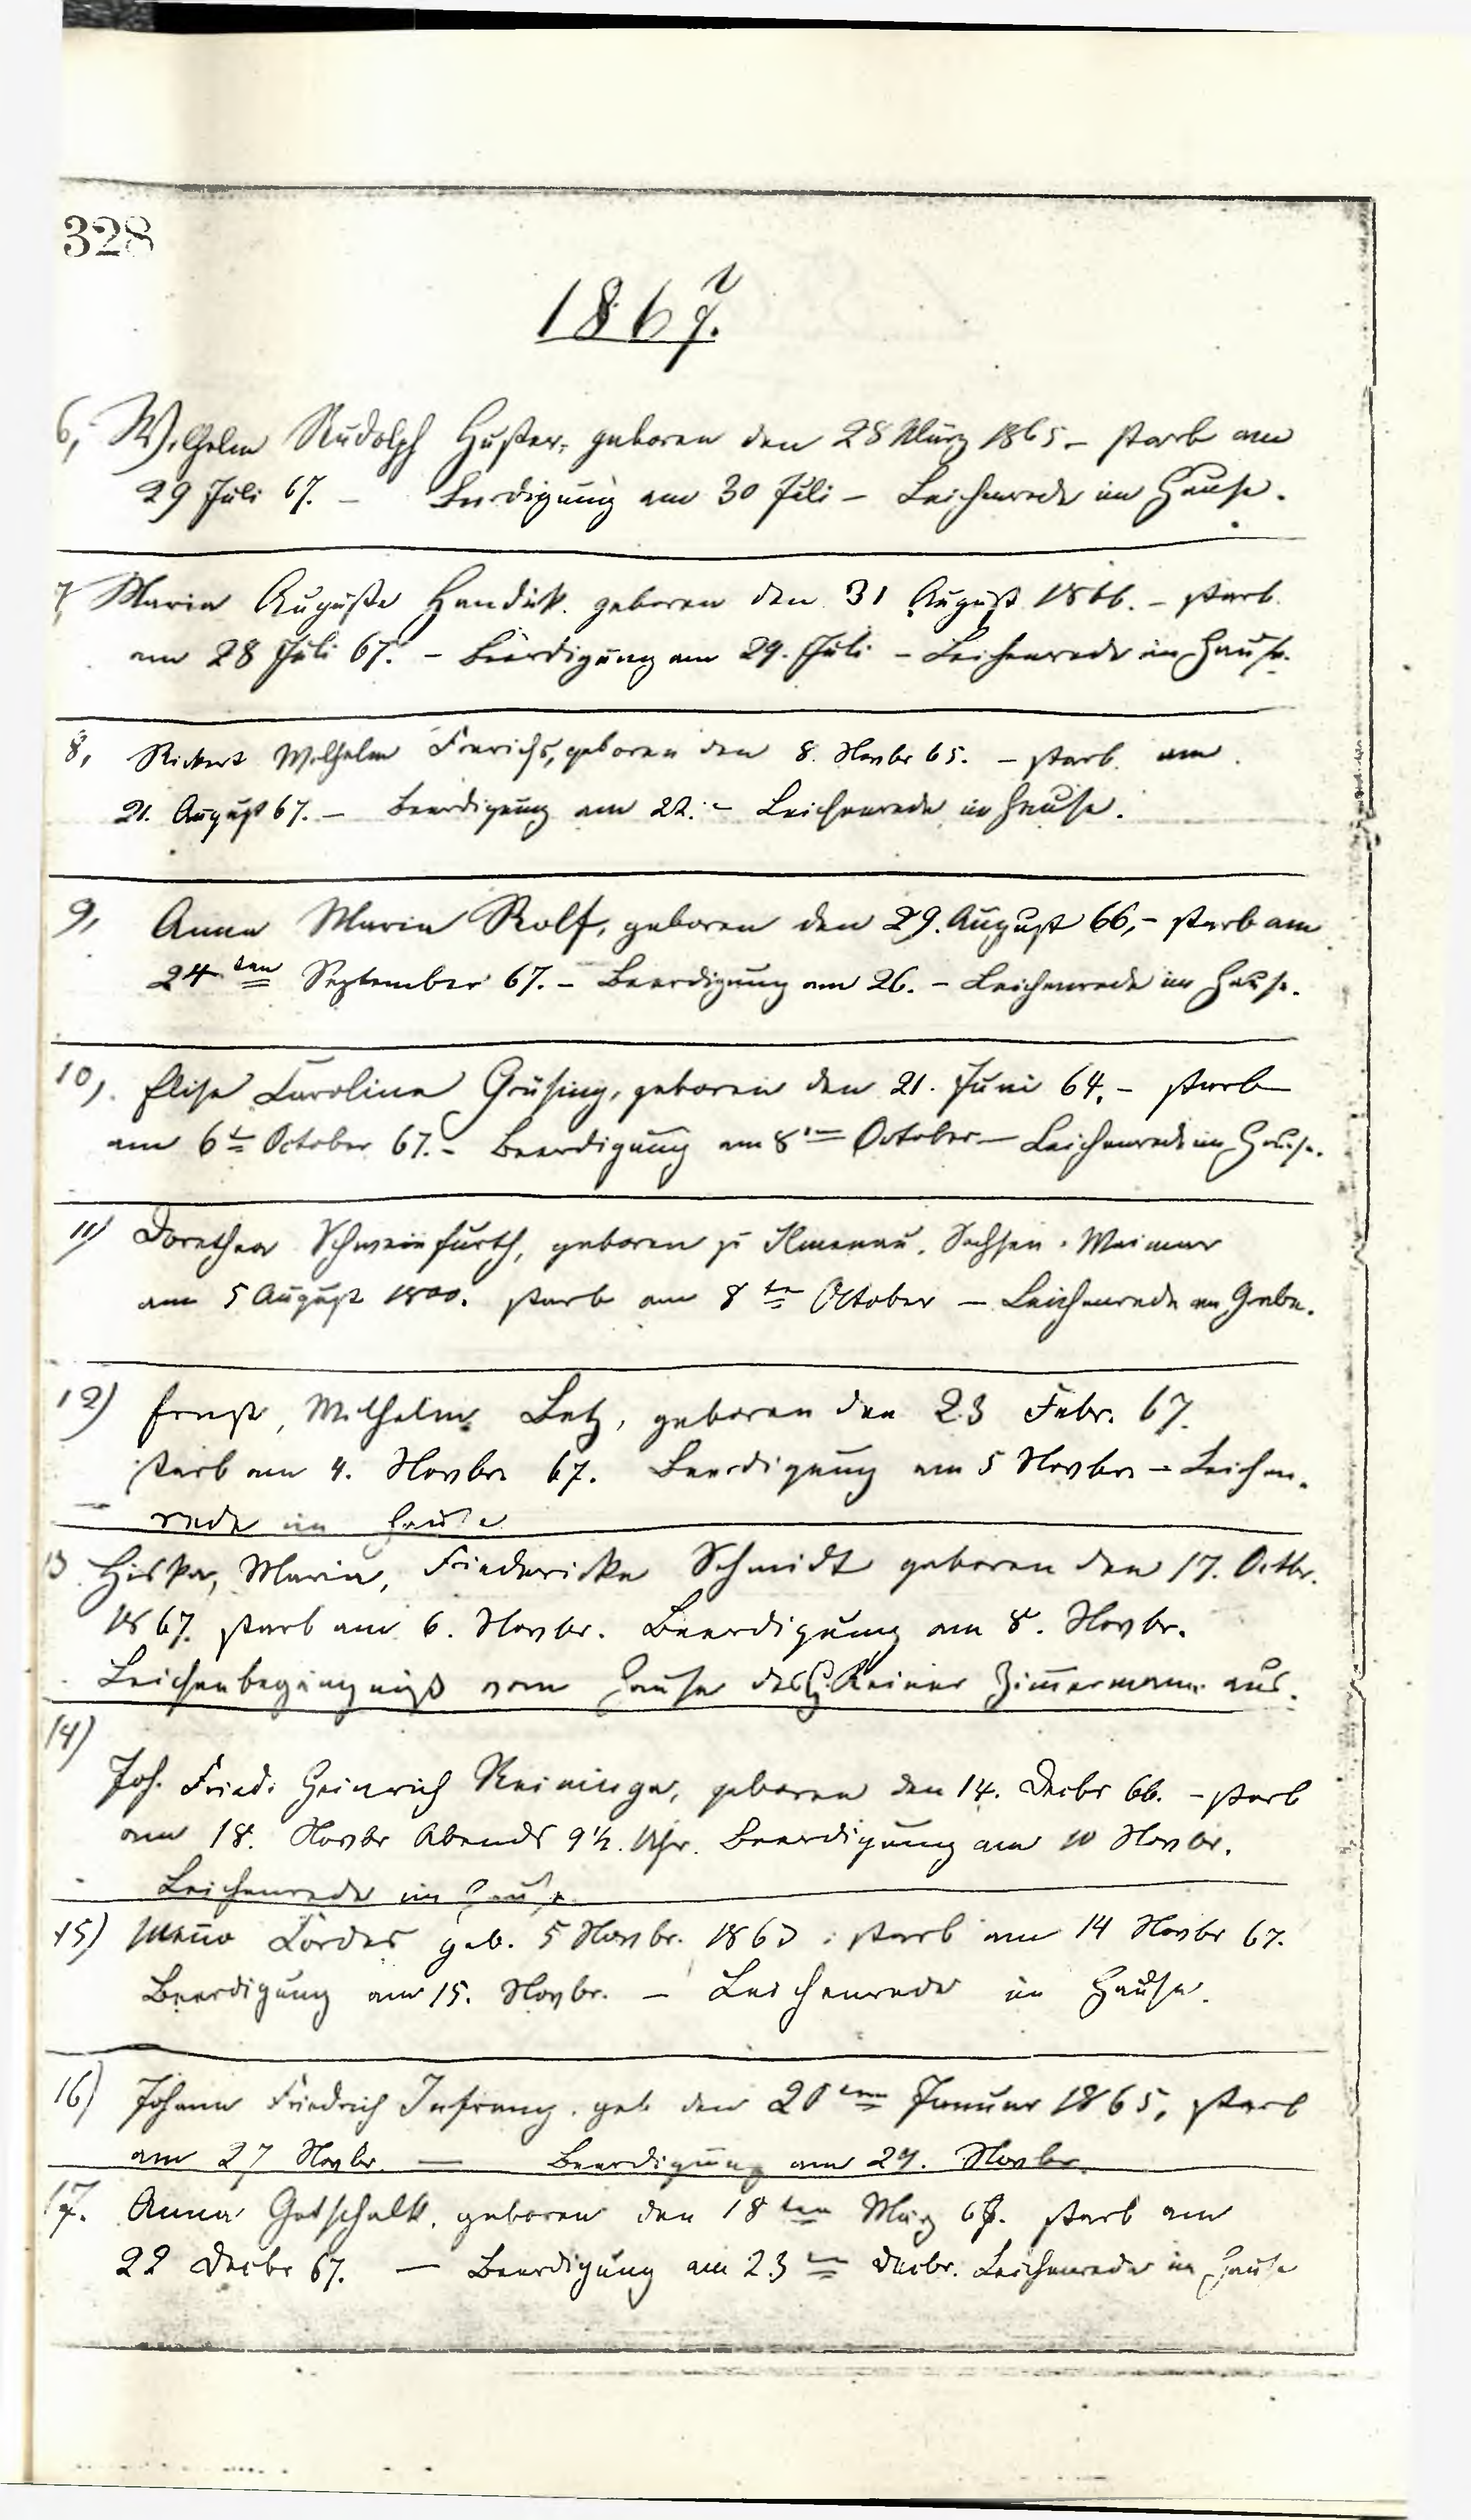 328
1867.
6, Wilhelm Rudolph Huster, geboren den 28 März 1865 – starb am
29 Juli 67. – Beerdigung am 30 Juli – Leichenrede im Hause.
7, Maria Auguste geboren den 31 August 1866. – starb
am 28 Juli 67. – Beerdigung am 29. Juli – Leichenrede im Hause.
8, Rickert Wilhelm Frerichs, geboren den 8. Novbr 65. – starb am
21. August 67. – Beerdigung am 22. – Leichenrede im Hause.
9, Anna Maria Rolf, geboren den 29. August 66, – starb am
24ten September 67. – Beerdigung am 26. – Leichenrede im Hause.
10, Elise Carolina Grüsing, geboren den 21. Juni 64, – starb
am 6t October 67. – Beerdigung am 8ten October – Leichenrede im Hause.
11) Dorothea Schweinfurth, geboren zu Ilmenau, Sachsen-Weimar
am 5 August 1800. starb am 8ten October – Leichenrede am Grabe.
12) Ernst, Wilhelm Betz, geboren den 23 Febr. 67.
starb am 4. Novbr 67. Beerdigung am 5 Novbr – Leichen-
rede im Hause
13 Hiska, Maria, Friedericka Schmidt geboren den 17. Octbr.
1867. starb am 6. Novbr. Beerdigung am 8. Novbr.
Leichenbegängniß vom Hause des Reiner Zimmermann aus.
14)
Joh. Fried. Heinrich Reininga, geboren den 14. Decbr 66. – starb
am 18. Novbr Abends 9½ Uhr. Beerdigung am Novbr.
Leichenrede im Hause
15) Menno Cordes geb. 5 Novbr. starb am 14 Novbr 67.
Beerdigung am 15. Novbr. – Leichenrede im Hause.
16) Johann Friedrich geb den Januar 1865, starb
am 27 Novbr. — Beerdigung am 29. Novbr.
17. Anna Gotschalk, geboren den 18ten März starb am
22 Decbr 67. — Beerdigung am 23ten Decbr. Leichenrede im Hause